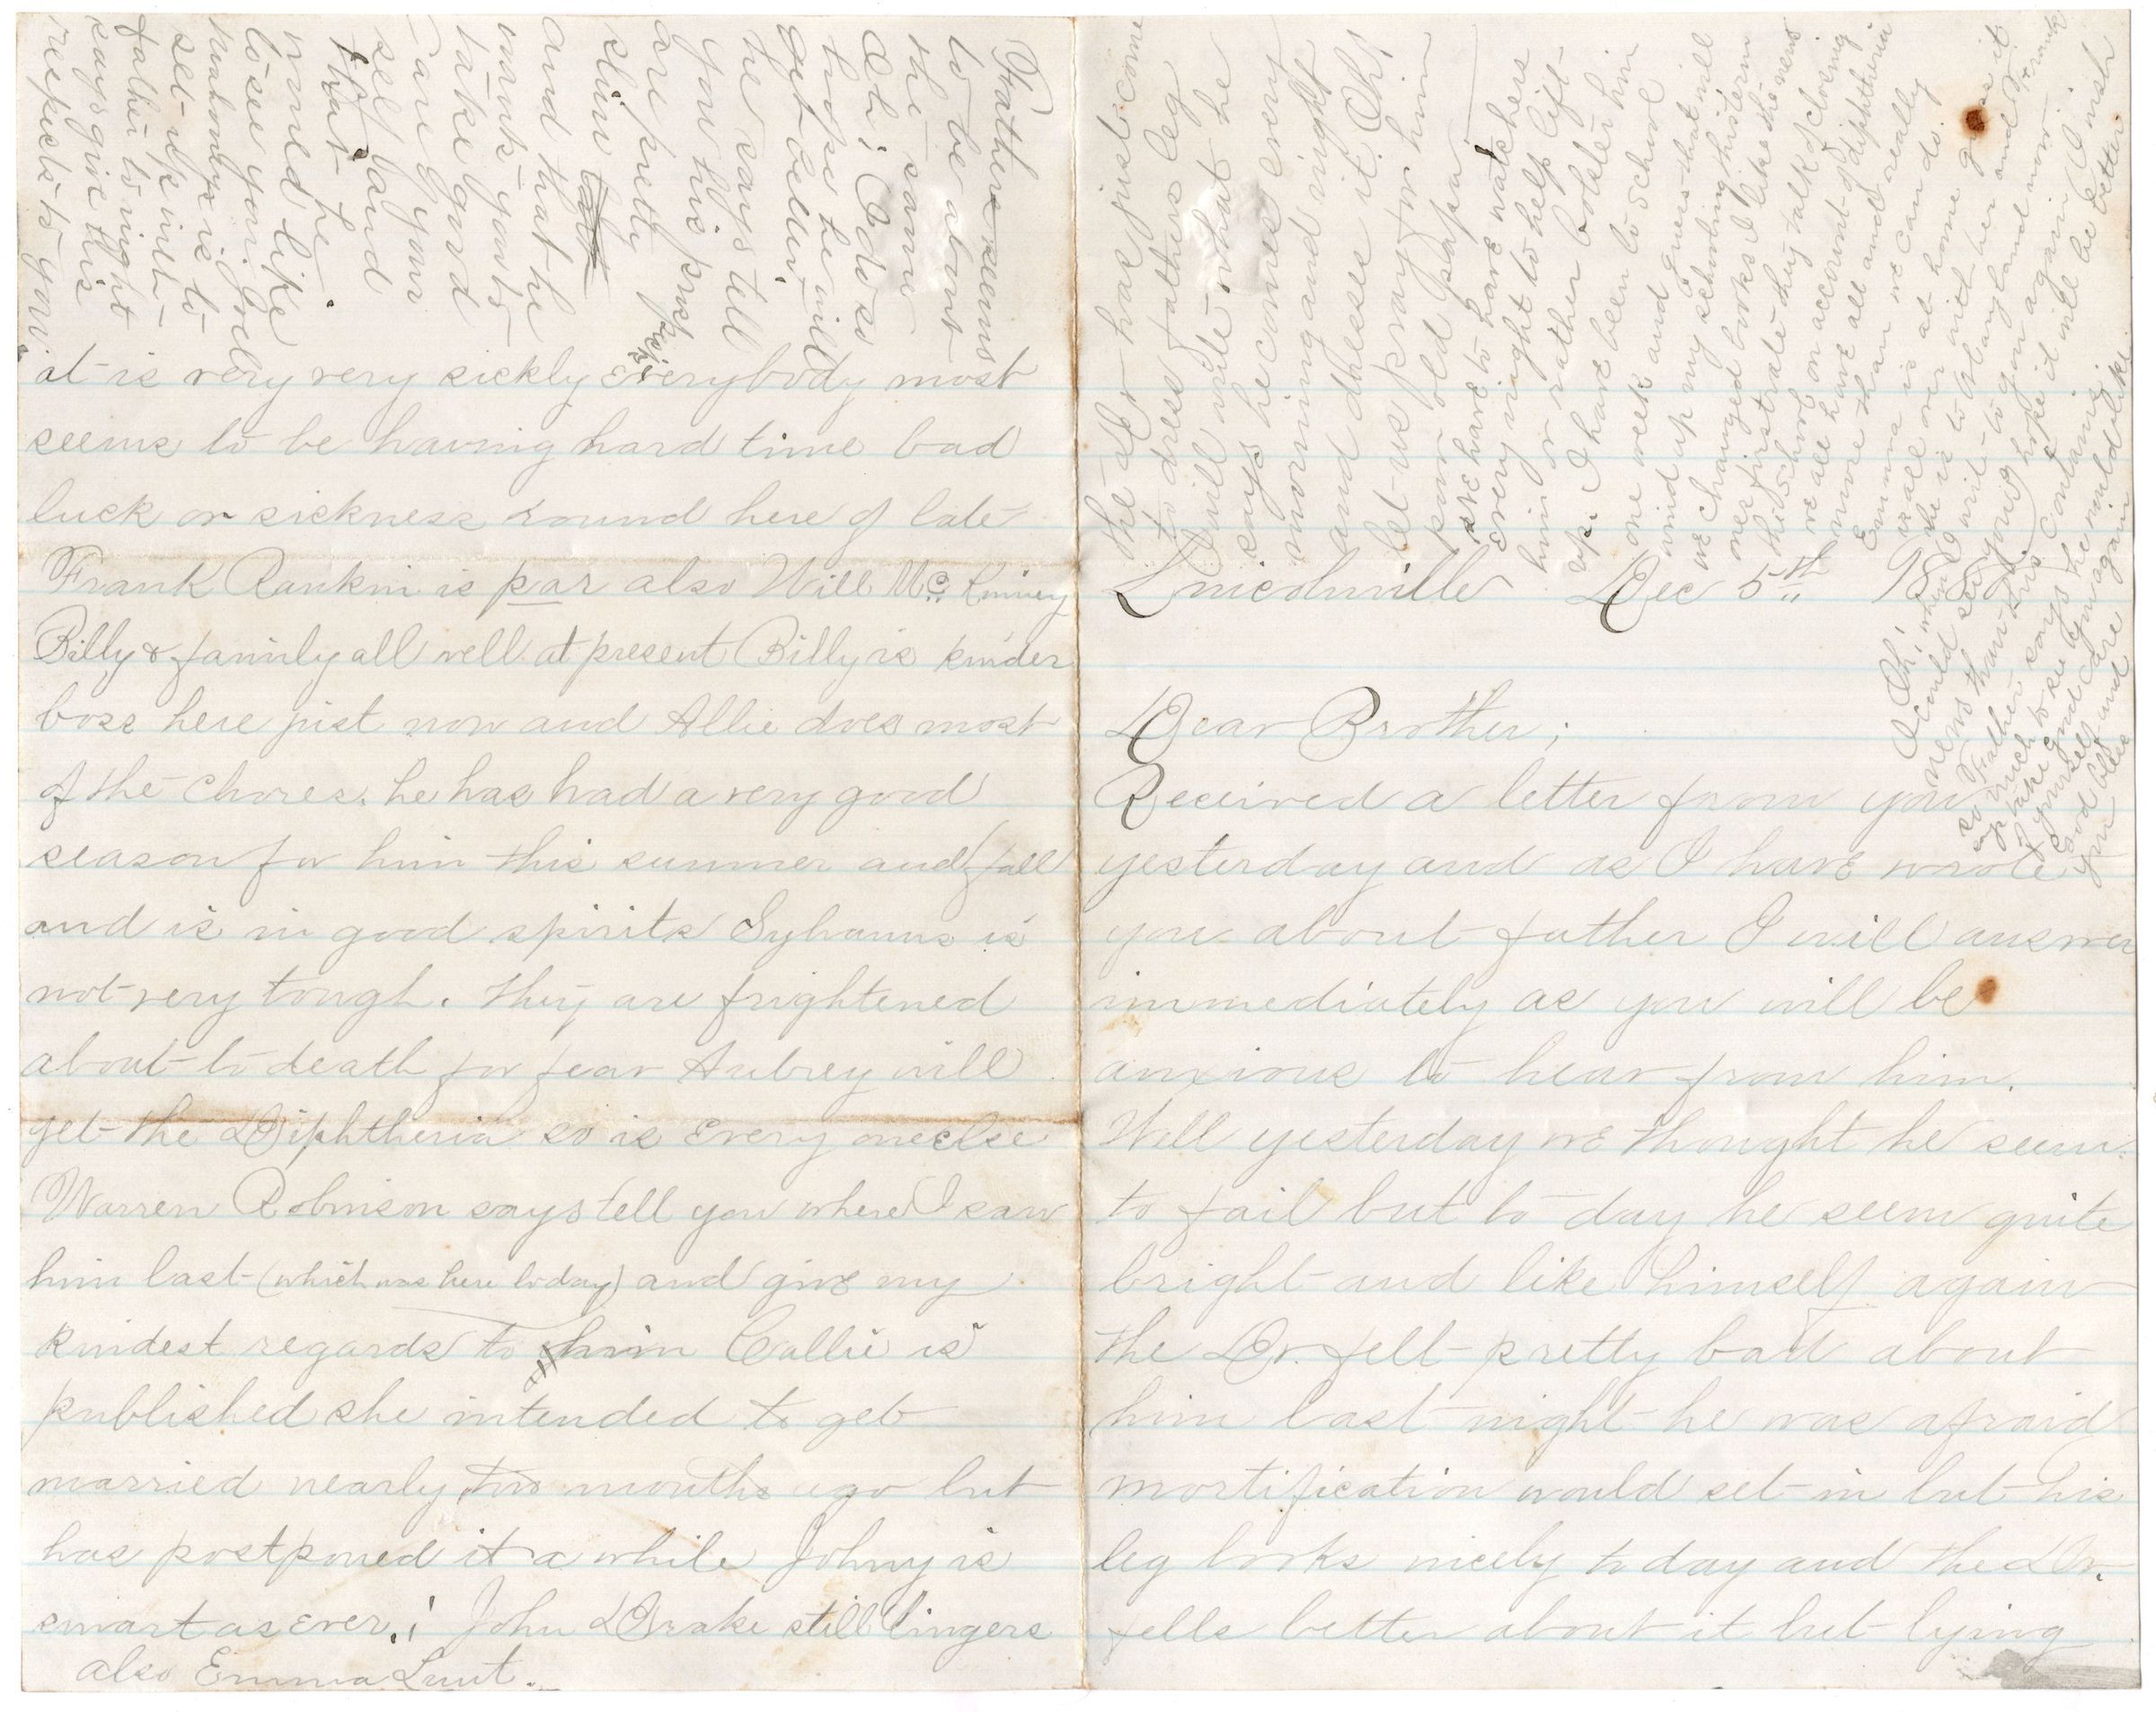 Lincolnville Dec 5th
Dear Brother;
Received a letter from you
yesterday and as I have wrote
you about father I will answer
immediately as you will be
anxious to hear from him.
Well yesterday we thought he seem
to fail but to day he seem quite
bright and like himself again
the Dr. felt pretty bad about
him last night he was afraid
mortification would set in but his
leg looks nicely to day and the Dr.
fells better about it but lying
it is very very sickly everybody most
seems to be having hard time bad
luck or sickness round here of late
Frank Rankin is par also Will Mc Kinney
Billy & family all well at present Billy is kinder
boss here jist now and Allie does most
of the chores. he has had a very good
season for him this summer and fall
and is in good spirits Sylvanus is
not very tough. they are frightened
about to death for fear Aubrey will
get the Diphtheria so is every one else
Warren Robinson says tell you where I saw
him last (which was here to day) and give my
kindest regards to him Callie is
published she intended to get
married nearly two months ago but
has postponed it a while Johny is
smart as ever.! John Drake still lingers
also Emma Lunt.
Father seems
to be about
the same
Oh! I do so
hope he will
get better,
he says tell
you his pros
pects
are pretty
slim
and that he
wants you to
take good
care of your
self and
that he
would like
to see you. Joel
Mahoney is to
set up with
father to night
says give his
respects to you
the Dr has just come
to dress fathers leg
I will write what he
says he comes every
morning and night
and dresses it. Oh!
let us pray for him
poor old papa.
we have to have watchers
every night to help lift
him or rather bolster him
up. I have been to school
one week and guess that will
wind up my schooling this term
we changed books I like the new
ones firstrate they talk of closing
the school on account of diphtheria
we all have all and really
more than we can do.
Emma is at home guess it
is all over with her and Frank
he is to Rockland now
I Oh! when
I could see you
news than this contains.
Father says he would like
so much to see you again
take good care
of yourself and
God bless
you